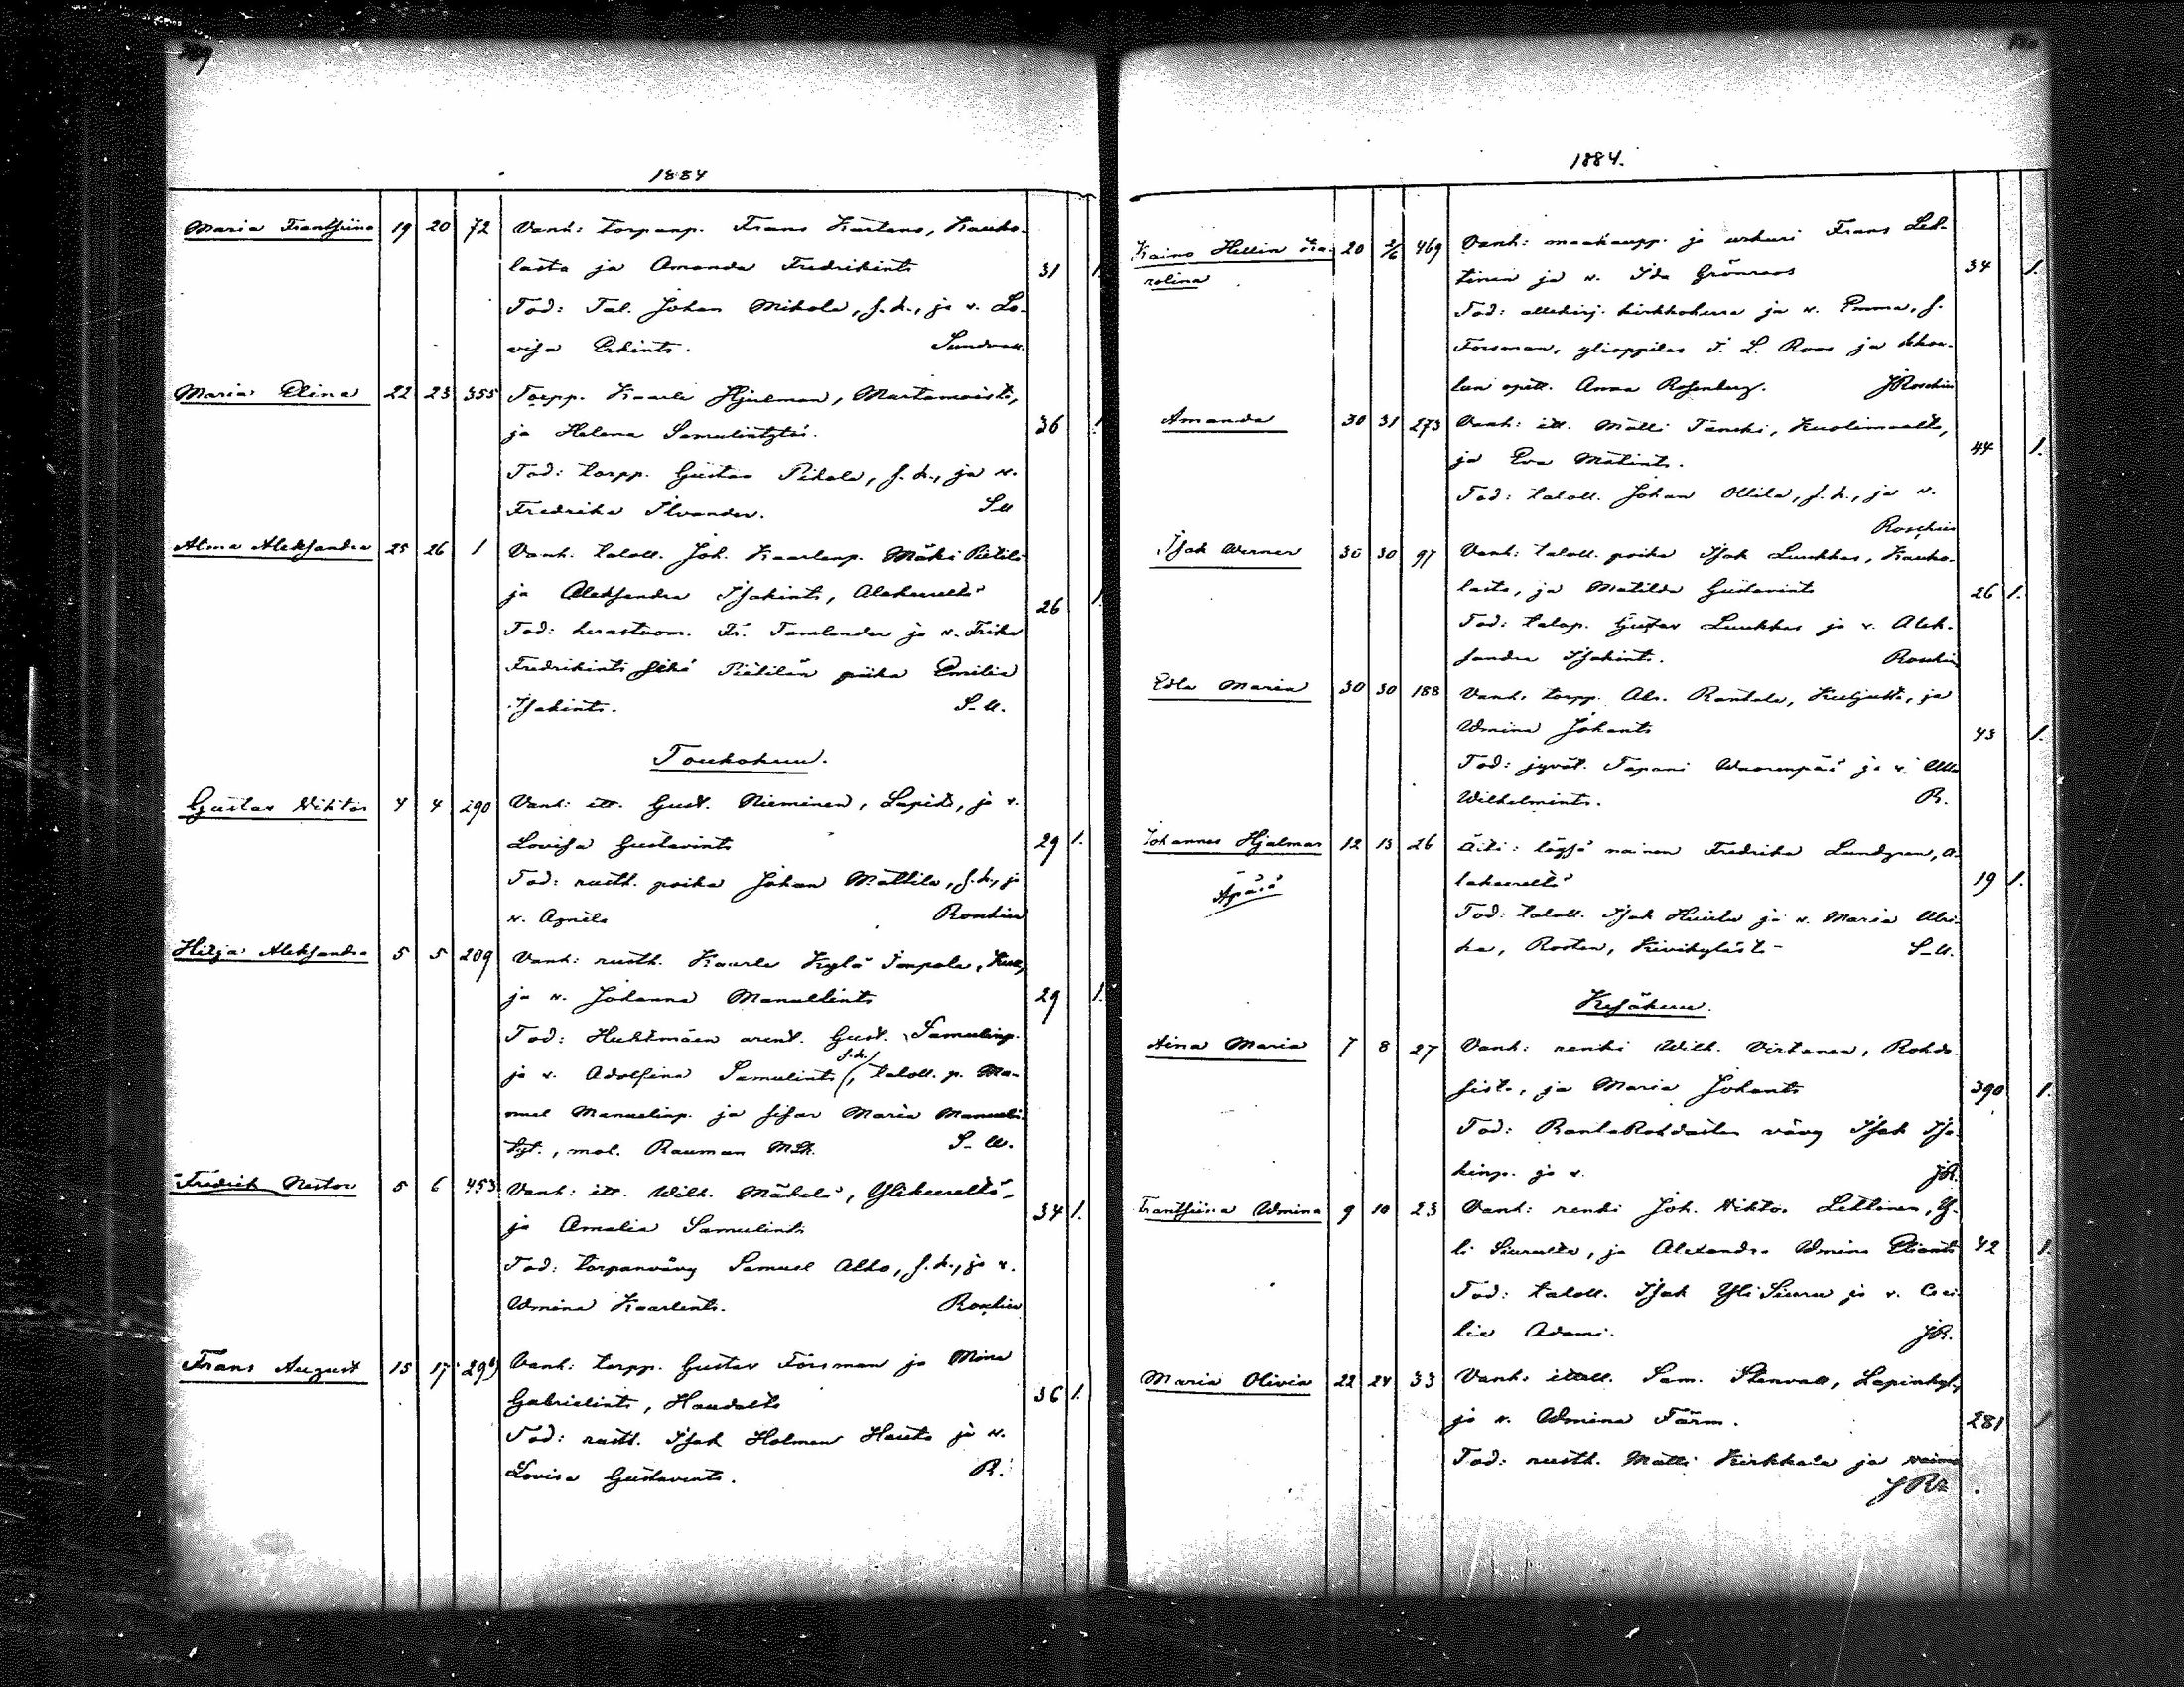 1884
Maria Frantsiina 19 20 72 Vanh: torpanp. Frans Kustano, Kauko-
lasta ja Amanda Fredrikints 31 1
Tod: Tal. Johan Mikola, s.k., ja v. Lo-
visa Erkints. Sundvall.
Maria Elina 22 23 355 Torpp. Kaarle Hjulman, Martamoista,
ja Helena Samulintytär. 36 1
Tod: torpp. Gustav Pihola, s.k., ja v.
Fredrika Ilvander. S-ll
Alma Aleksandra 25 26 1 Vanh. taloll. Joh. Kaarlenp. Mäki Pietilä
ja Aleksandra Isakints, Alakeereltä 26 1
Tod: herastuom. Fr. Tamlander ja v. Frika
Fredrikints sekä Pietilän piika Emilia
Isakints. S-ll.
Toukokuu.
Gustav Viktor 4 4 290 Vanh: itt. Gust. Nieminen, Lapista, ja v.
Lovisa Gustavints 29 1.
Tod: rusth. poika Johan Mattila, s.k., ja
v. Agnäta Roschier
Hilja Aleksandra 5 5 209 Vanh: rusth. Kaarle Kylä Impola,
ja v. Johanna Manuelints 29 1.
Tod: Huhtmäen arent. Gust. Samulinp.
ja v. Adolfina Samulints s.k., taloll. p. Ma-
nuel Manuelinp. ja sisar Maria Manueli
tyt., mol. Rauman Msk. S-ll.
Fredrik Nestor 5 6 453 Vanh: itt. Wilh. Mäkelä, Ylikeereltä,
ja Amalia Samulints 34 1.
Tod: torpanvävy Samuel Alho, s.k., ja v.
Wmina Kaarlents. Roschier
Frans August 15 17 296 Vanh: torpp. Gustav Forsman ja Mina
Gabrielints, Haudalta 36 1.
Tod: rusth. Isak Holman Hauta ja v.
Lovisa Gustavints. R.
1884.
Kaino Hellin Ka- 20 2/6 469 Vanh: maakaupp. ja urkuri Frans Leh-
rolina tinen ja v. Ida Grönroos 34 1.
Tod: allekirj. kirkkoherra ja v. Emma, s.
Forsman, ylioppilas I. L. Roos ja kkou-
lun opett. Anna Rosenberg. JRoschier
Amanda 30 31 273 Vanh: itt. Matti Tanski, Kuolimaalta,
ja Eva Matints. 44 1.
Tod: taloll. Johan Ollila, s.k., ja v.
Roschier
Isak Werner 30 30 97 Vanh: taloll. poika Isak Luukkas, Kauko-
lasta, ja Matilda Gustavints 26 1.
Tod: talop. Gustav Luukkas ja v. Alek-
sandra Isakints. Roschier
Edla Maria 30 30 188 Vanh: torpp. Abr. Rantala, Kuljusta, ja
Wmina Johants 43 1.
Tod: jyvät. Tapani Wuorenpää ja v. Ulla
Wilhelmints. R.
Johannes Hjalmar 12 13 26 Äiti: löysä nainen Fredrika Lundgren, A-
Äpärä lakeereltä 19 1.
Tod: taloll. Isak Huida ja v. Maria Ulri-
ka, Rosten, Kivikylästä S-ll.
Kesäkuu.
Aina Maria 7 8 27 Vanh: renki Wilh. Virtanen, Rohdo-
sista, ja Maria Johants 390 1.
Tod: RantaRohdaisten vävy Isak Isa-
kinp. ja v. JR.
Frantsiina Wmina 9 10 23 Vanh: renki Joh. Viktor Lehtinen, Y-
li Siurulta, ja Alexandra Wmina Elianti 42 1.
Tod: taloll. Isak Yli Siuru ja v. Ceci-
lia Adami. JR.
Maria Olivia 22 24 33 Vanh: itsell. Sam. Stenvall, Lapinkyl.,
ja v. Wmina Färm. 281 1
Tod: rusth. Matti Kirkkala ja vaimo
JRr.